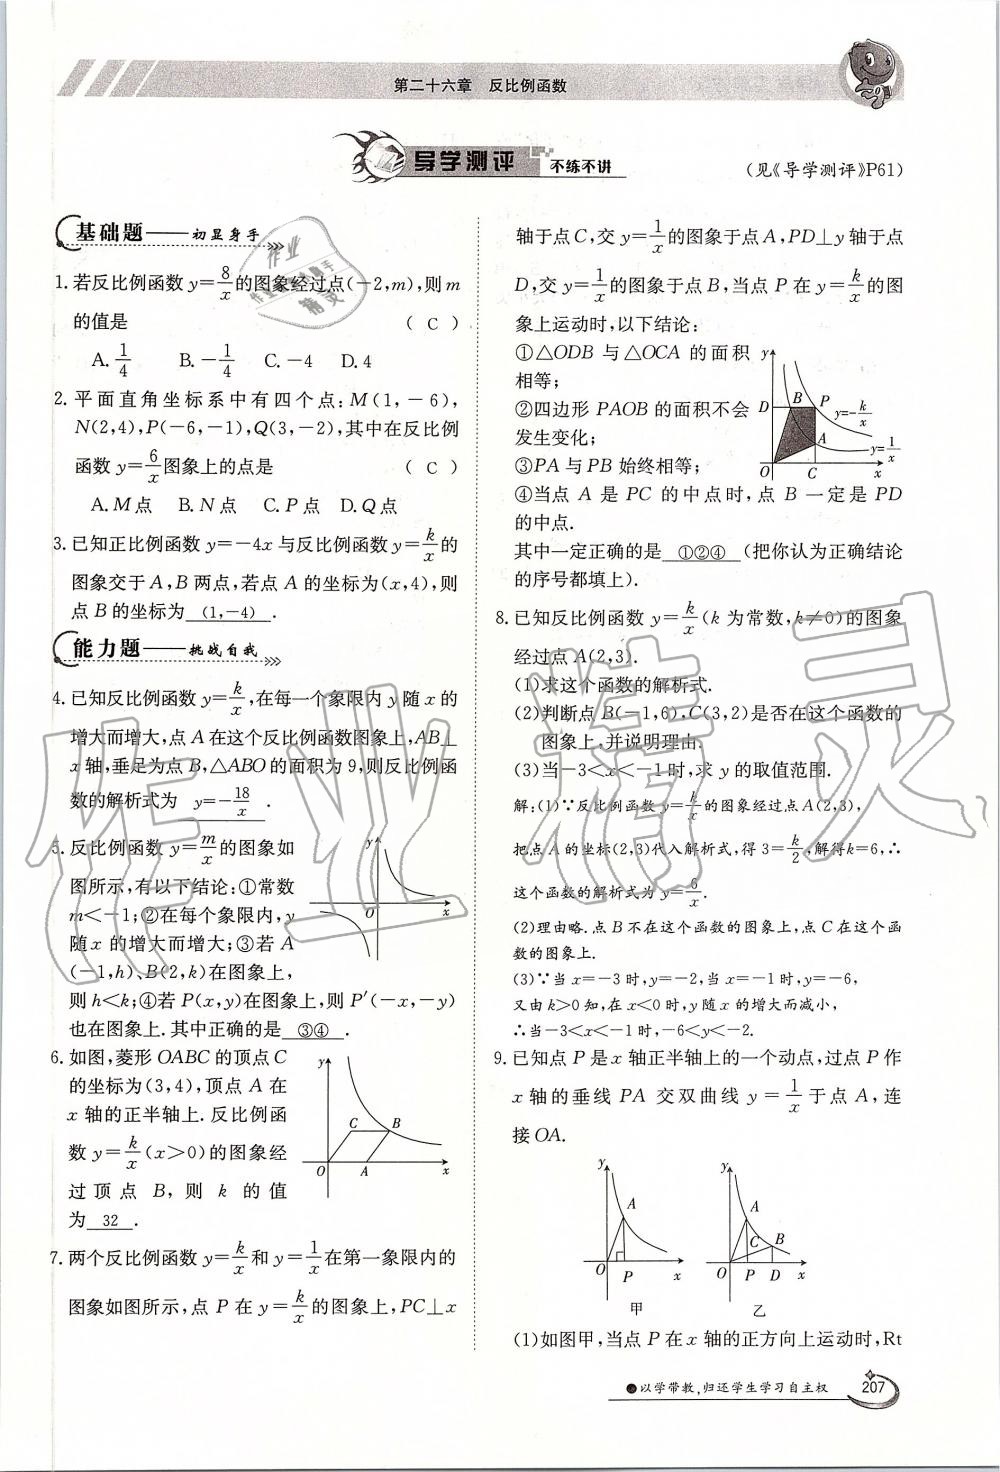 第二十六章 反比例函数
导学测评 不练不讲
(见《导学测评》P61)
基础题——初显身手
1. 若反比例函数 y=8/x 的图象经过点(-2,m),则 m
的值是 ( C )
A. 1/4 B. -1/4 C. -4 D. 4
2. 平面直角坐标系中有四个点: M(1,-6),
N(2,4),P(-6,-1),Q(3,-2),其中在反比例
函数 y=6/x 图象上的点是 ( C )
A. M点 B. N点 C. P点 D. Q点
3. 已知正比例函数 y=-4x 与反比例函数 y=k/x 的
图象交于 A,B 两点,若点 A 的坐标为(x,4),则
点 B 的坐标为 (1,-4) .
能力题——挑战自我
4. 已知反比例函数 y=k/x,在每一个象限内 y 随 x 的
增大而增大,点 A 在这个反比例函数图象上,AB⊥
x 轴,垂足为点 B,△ABO 的面积为 9,则反比例函
数的解析式为 y=-18/x .
5. 反比例函数 y=m/x 的图象如
图所示,有以下结论:①常数
m<-1;②在每个象限内,y
随 x 的增大而增大;③若 A
(-1,h),B(2,k)在图象上,
则 h<k;④若 P(x,y)在图象上,则 P′(-x,-y)
也在图象上.其中正确的是 ③④ .
y
O x
6. 如图,菱形 OABC 的顶点 C
的坐标为(3,4),顶点 A 在
x 轴的正半轴上.反比例函
数 y=k/x (x>0)的图象经
过顶点 B,则 k 的值
为 32 .
y
C B
O A x
7. 两个反比例函数 y=k/x 和 y=1/x 在第一象限内的
图象如图所示,点 P 在 y=k/x 的图象上,PC⊥x
轴于点 C,交 y=1/x 的图象于点 A,PD⊥y 轴于点
D,交 y=1/x 的图象于点 B,当点 P 在 y=k/x 的图
象上运动时,以下结论:
①△ODB 与△OCA 的面积
相等;
②四边形 PAOB 的面积不会
发生变化;
③PA 与 PB 始终相等;
④当点 A 是 PC 的中点时,点 B 一定是 PD
的中点.
其中一定正确的是 ①②④ (把你认为正确结论
的序号都填上).
y
D B P y=k/x
A y=1/x
O C x
8. 已知反比例函数 y=k/x (k 为常数,k≠0)的图象
经过点 A(2,3).
(1)求这个函数的解析式.
(2)判断点 B(-1,6),C(3,2)是否在这个函数的
图象上,并说明理由.
(3)当-3<x<-1时,求 y 的取值范围.
解:(1)∵反比例函数 y=k/x 的图象经过点 A(2,3),
把点 A 的坐标(2,3)代入解析式,得 3=k/2,解得k=6,∴
这个函数的解析式为 y=6/x.
(2)理由略.点 B 不在这个函数的图象上,点 C 在这个函
数的图象上.
(3)∵当 x=-3 时,y=-2,当 x=-1 时,y=-6,
又由 k>0 知,在 x<0 时,y 随 x 的增大而减小,
∴当-3<x<-1 时,-6<y<-2.
9. 已知点 P 是 x 轴正半轴上的一个动点,过点 P 作
x 轴的垂线 PA 交双曲线 y=1/x 于点 A,连
接 OA.
y
A
O P x
甲
y
A
C B
O P D x
乙
(1)如图甲,当点 P 在 x 轴的正方向上运动时,Rt
●以学带教,归还学生学习自主权 207
作业精灵